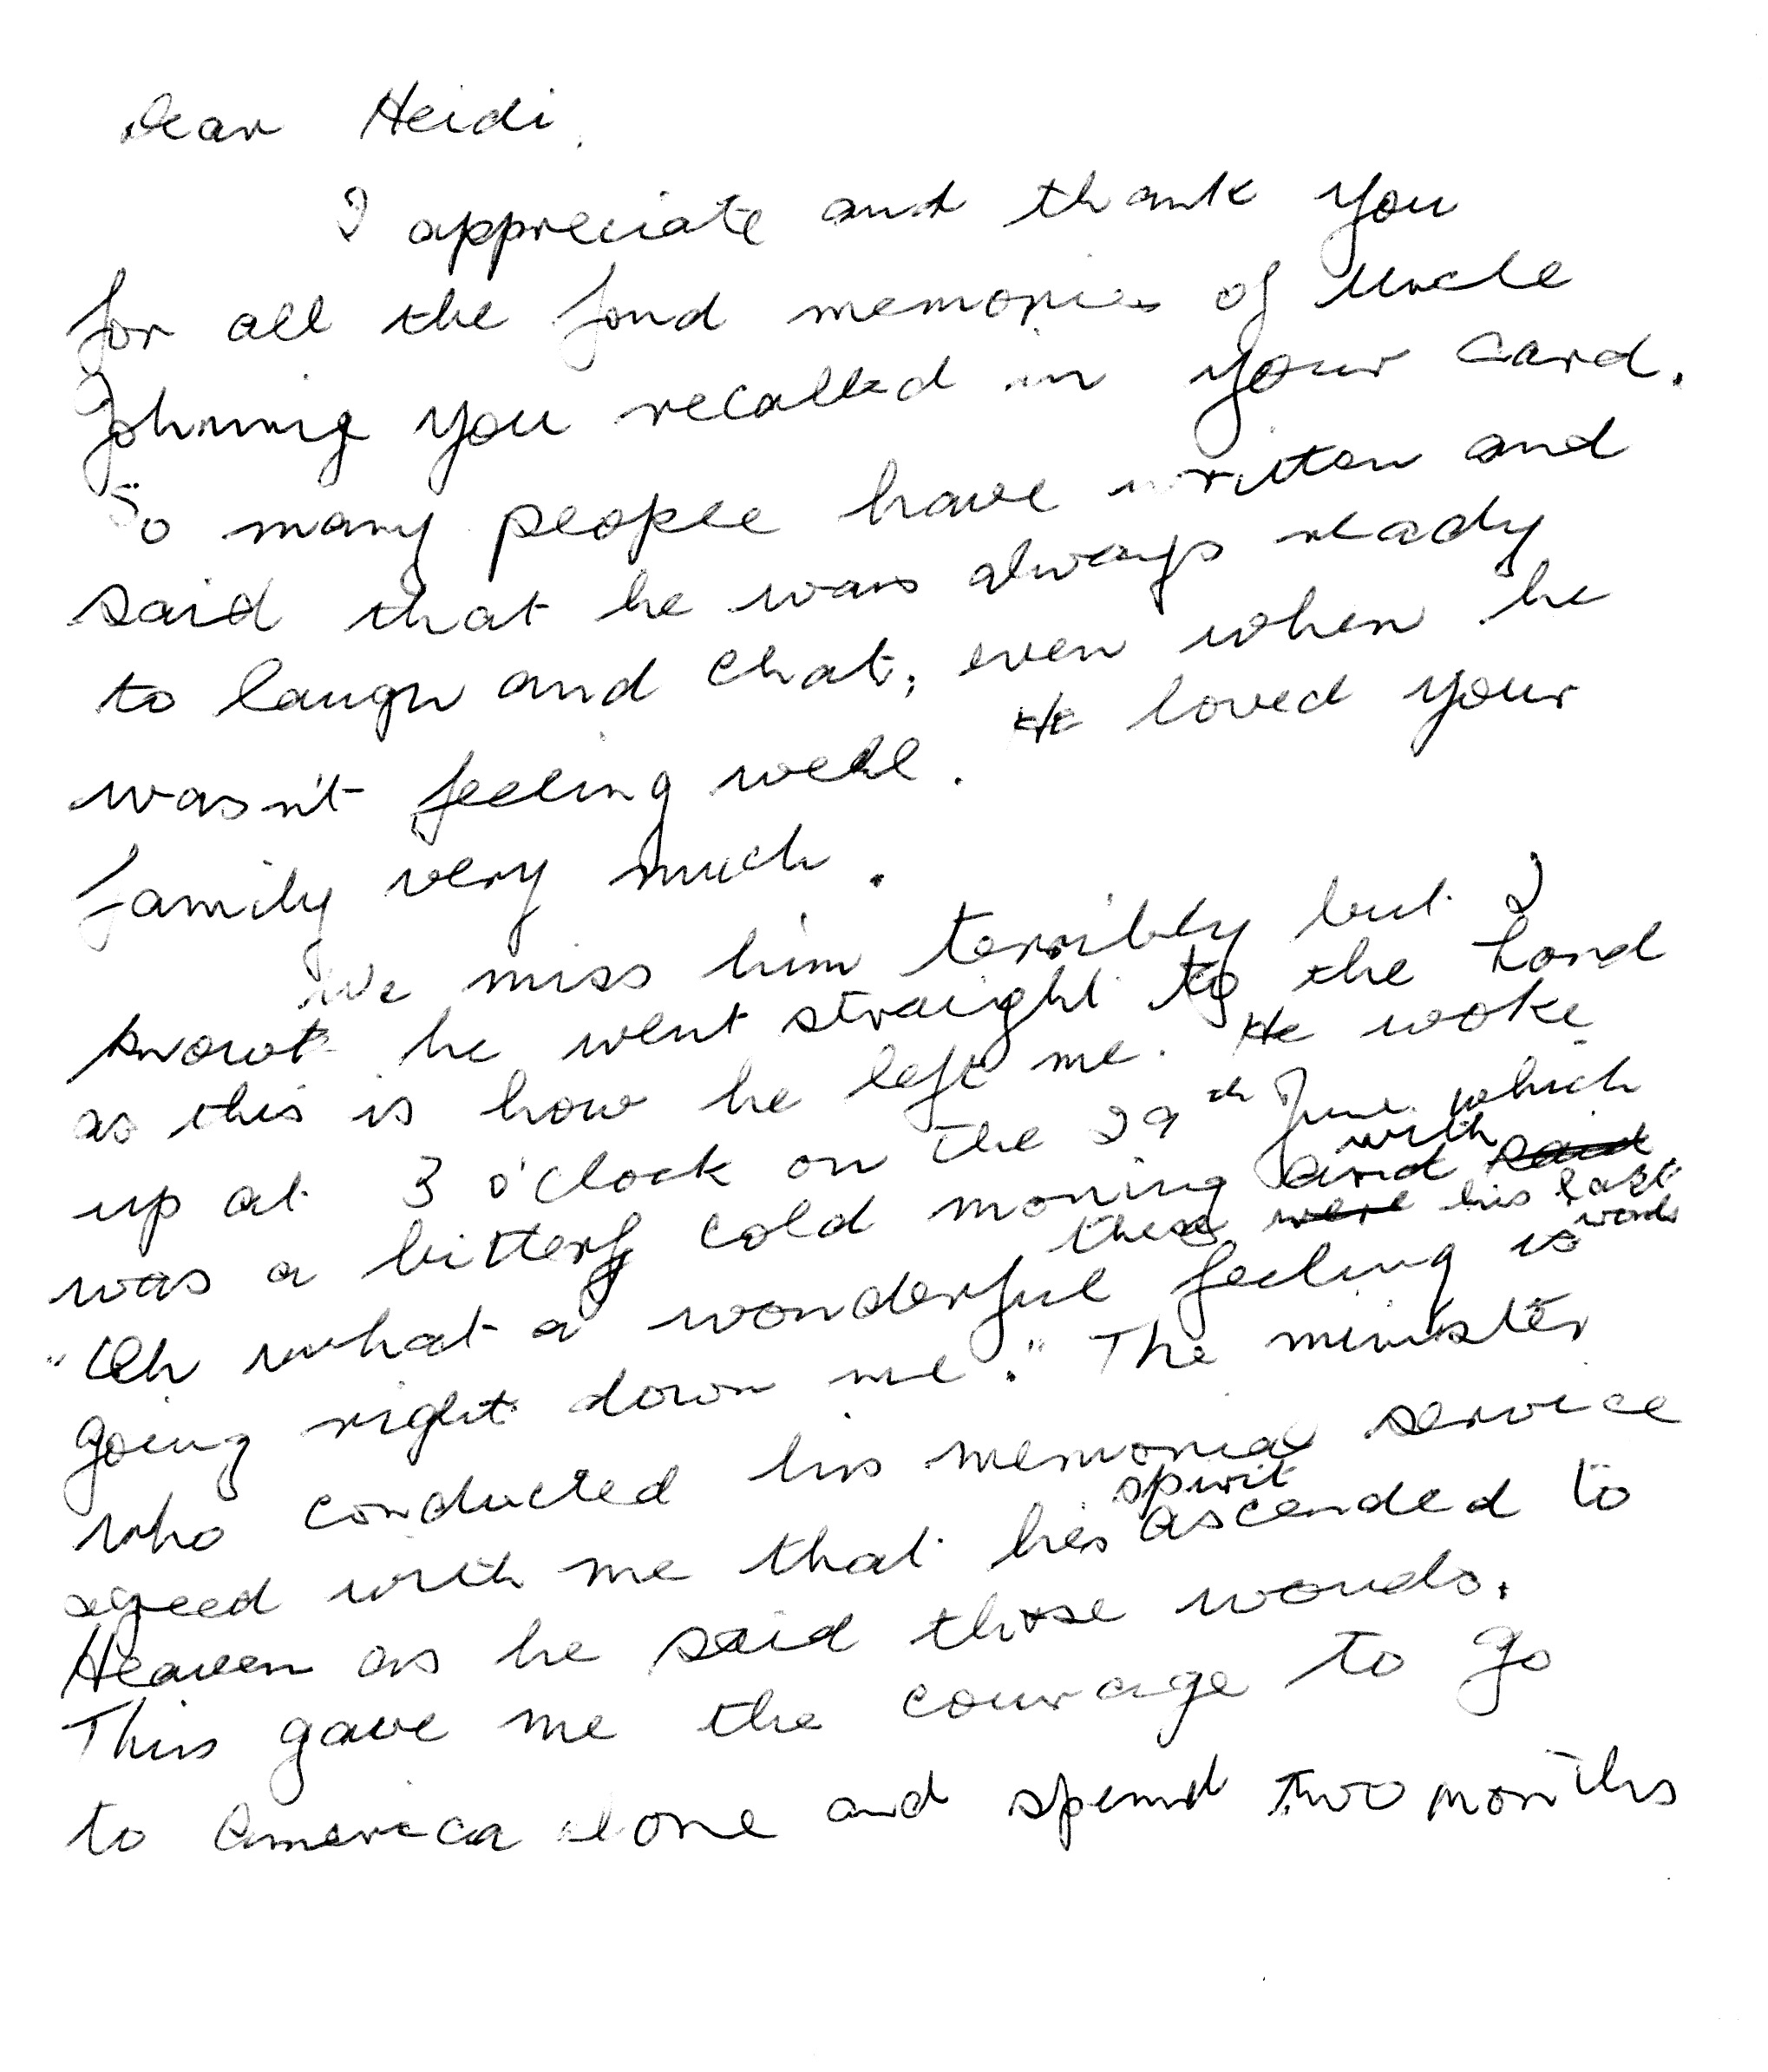 Dear Heidi,
I appreciate and thank you
for all the fond memories of Uncle
Johnnie you recalled in your card.
So many people have written and
said that he was always ready
to laugh and chat, even when he
wasn't feeling well. He loved your
family very much.
We miss him terribly but I
know he went straight to the Lord
as this is how he left me. He woke
up at 3 o'clock on the 29th June which
was a bitterly cold moning and with said
these were his last words
"Oh what a wonderful feeling is
going right down me." The minister
who conducted his memorial service
agreed with me that his spirit ascended to
Heaven as he said those words.
This gave me the courage to go
to America alone and spend two months